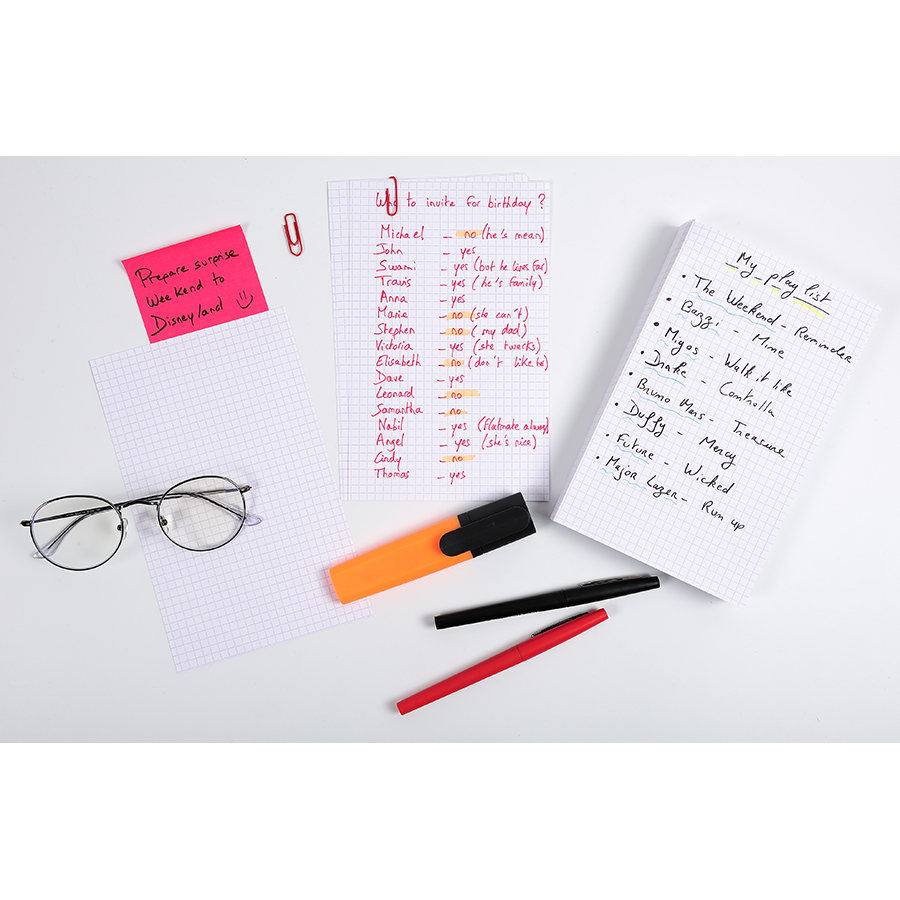 Prepare surprise
Weekend to
Disneyland
Who to invite for birthday ?
Michael – no (he's mean)
John – yes
Swami – yes (but he lives far)
Travis – yes (he's family)
Anna – yes
Marie – no (she can't)
Stephen – no (my dad)
Victoria – yes (she twerks)
Elisabeth – no (don't like to)
Dave – yes
Leonard – no
Samantha – no
Nabil – yes (flatmate always)
Angel – yes (she's nice)
Cindy – no
Thomas – yes
My play list
• The Weekend - Reminder
• Bazzi - Mime
• Migos - Walk it like
• Drake - Controlla
• Bruno Mars - Treasure
• Duffy - Mercy
• Future - Wicked
• Major Lazer - Run up